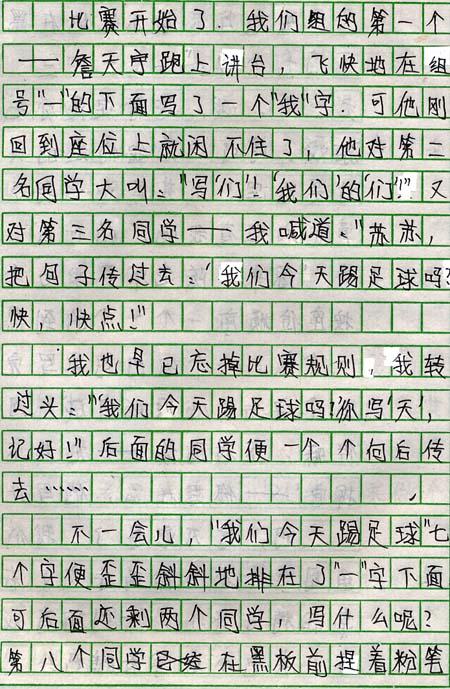 比赛开始了.我们组的第一个
——詹天宇跑上讲台，飞快地在组
号"一"的下面写了一个"我"字.可他刚
回到座位上就闲不住了，他对第二
名同学大叫："写'们'！'我们'的'们'！"又
对第三名同学——我喊道："苏苏，
把句子传过去：'我们今天踢足球吗？'
快，快点！"
我也早已忘掉比赛规则，我转
过头："'我们今天踢足球吗？'你写'天'，
记好！"后面的同学便一个个向后传
去……
不一会儿，"我们今天踢足球"七
个字便歪歪斜斜地排在了"一"字下面
可后面还剩两个同学，写什么呢？
第八个同学已经在黑板前捏着粉笔